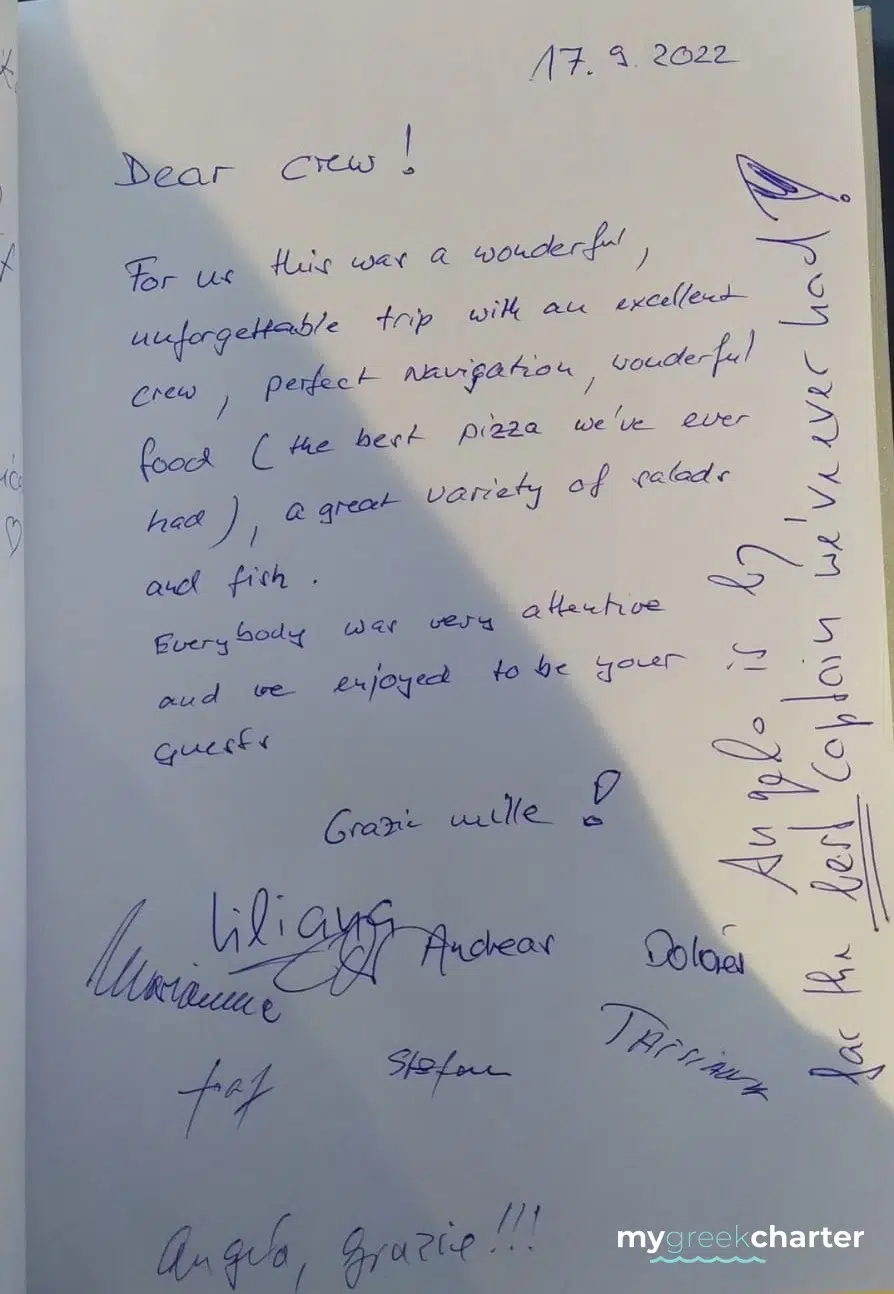 17. 9. 2022
Dear crew!
For us this was a wonderful,
unforgettable trip with an excellent
crew, perfect navigation, wonderful
food (the best pizza we've ever
had), a great variety of salads
and fish.
Everybody was very attentive
and we enjoyed to be your
guests
Grazie mille!
Angelo is by
far the best captain we've ever had!
Liliana
Marianne
Andreas
Dolores
Stefan
Angelo, grazie!!!
mygreekcharter